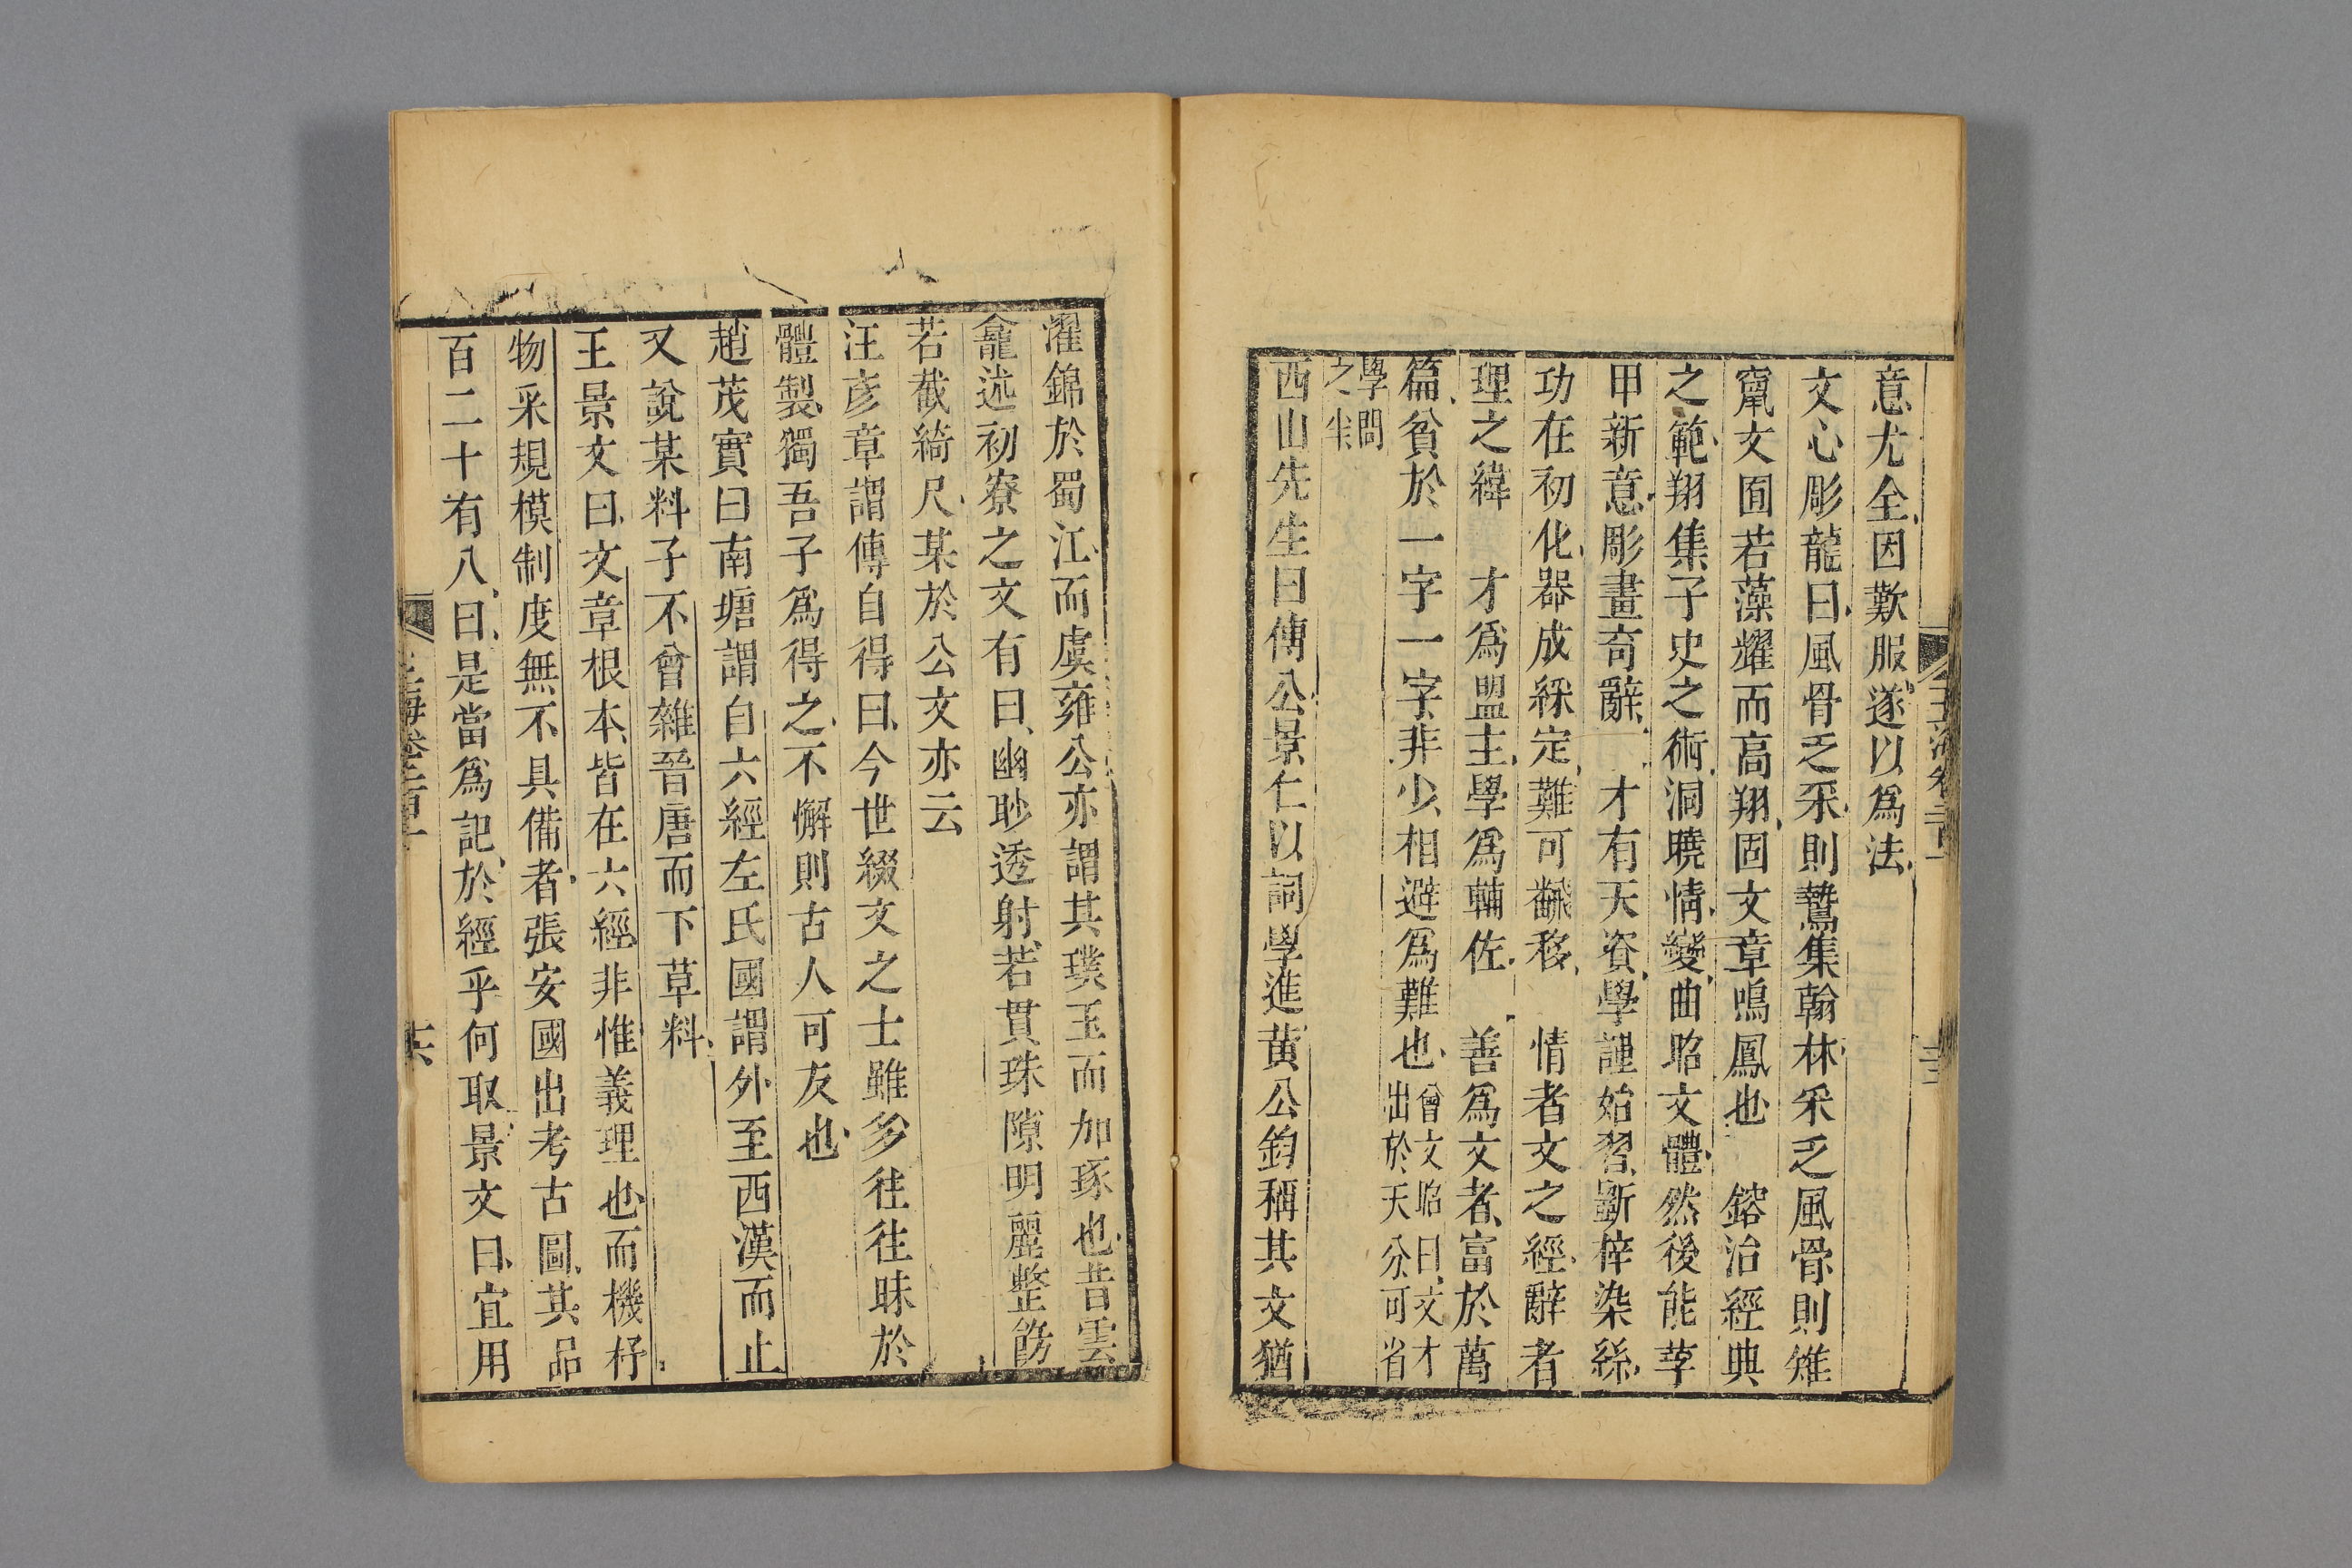 意尤全因歎服遂以爲法
文心彫龍曰風骨乏采則鷙集翰林采乏風骨則雉
竄文囿若藻耀而高翔固文章鳴鳳也　鎔治經典
之範翔集子史之術洞曉情變曲昭文體然後能莩
甲新意彫畫奇辭　才有天資學謹始習斲梓染絲
功在初化器成綵定難可飜移　情者文之經辭者
理之緯　才爲盟主學爲輔佐　善爲文者富於萬
篇貧於一字一字非少相避爲難也曾文昭曰文才出於天分可省
學問之半
西山先生曰傅公景仁以詞學進黃公鈞稱其文猶
濯錦於蜀江而虞雍公亦謂其璞玉而加琢也昔雲
龕述初寮之文有曰幽眇透射若貫珠隙明麗整飭
若截綺尺某於公文亦云
汪彥章謂傅自得曰今世綴文之士雖多往往昧於
體製獨吾子爲得之不懈則古人可友也
趙茂實曰南塘謂自六經左氏國謂外至西漢而止
又說某料子不曾雜晉唐而下草料
王景文曰文章根本皆在六經非惟義理也而機杼
物采規模制度無不具備者張安國出考古圖其品
百二十有八曰是當爲記於經乎何取景文曰宜用